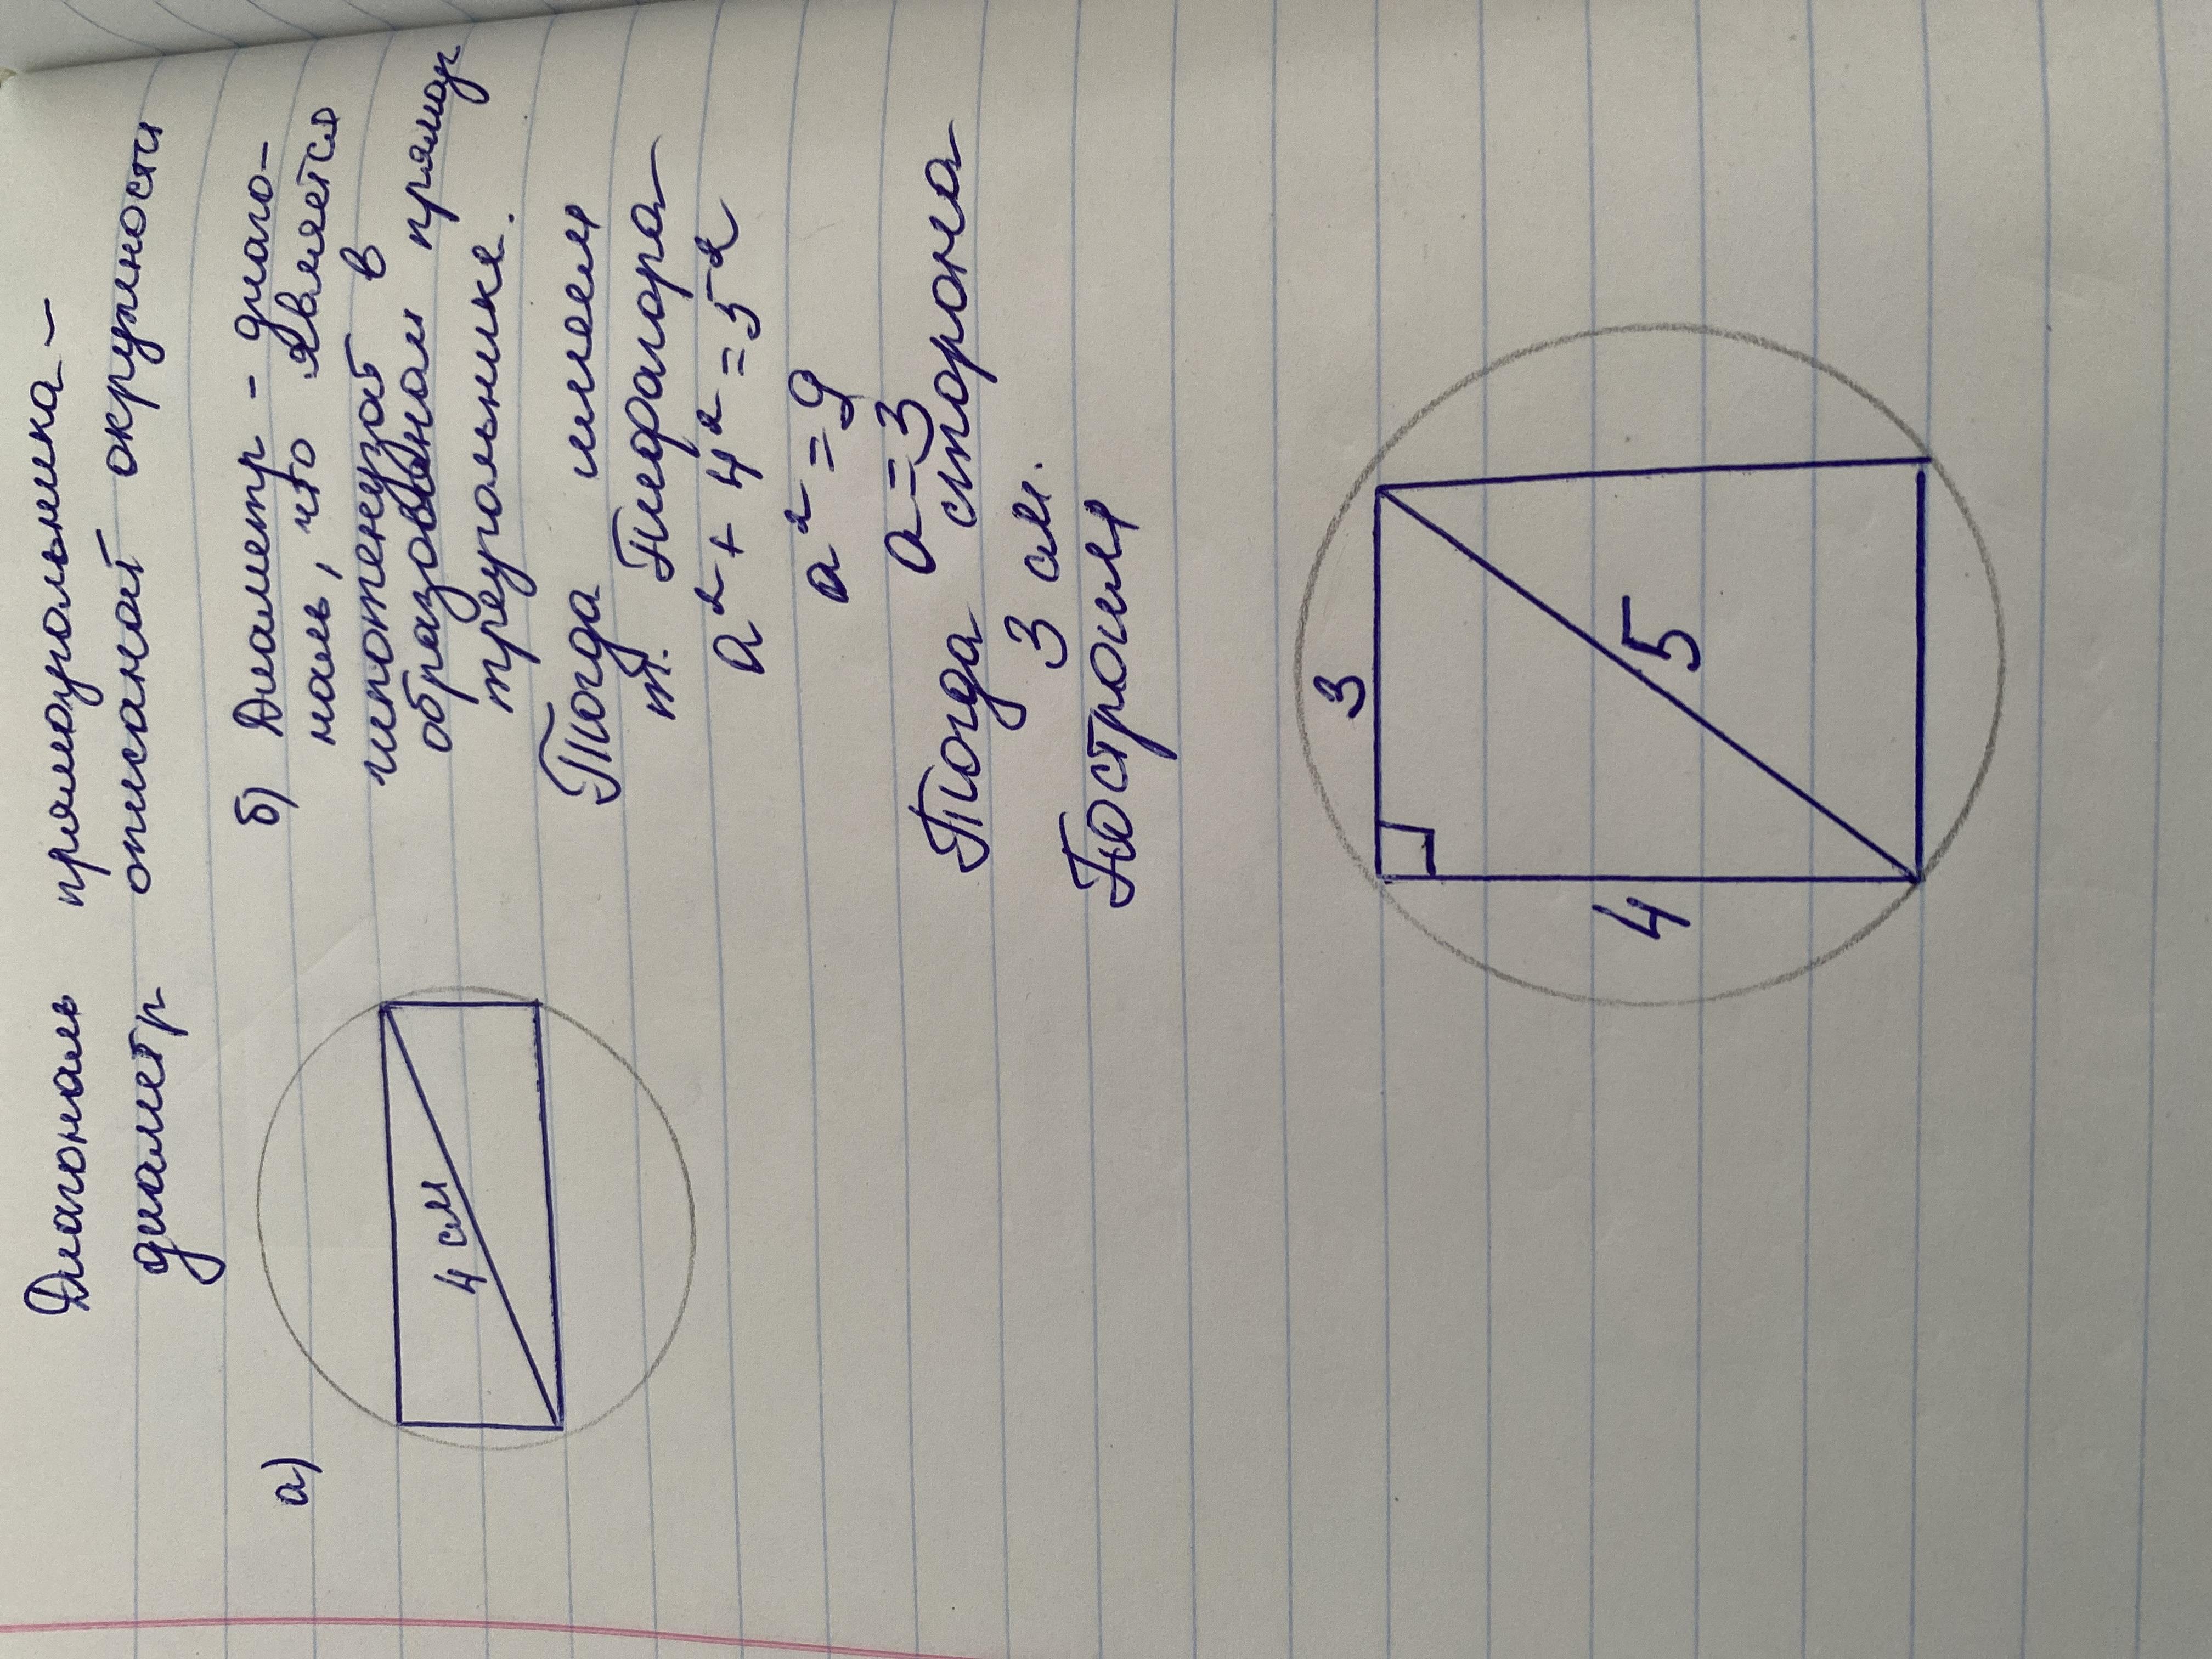 Диагональ прямоугольника –
диаметр описаной окружности
а)
4 см
б) Диаметр – диаго-
наль, что является
гипотенузой в
образованом прямоуг
треугольнике.
Тогда имеем
т. Пифагора
a² + 4² = 5²
a² = 9
a = 3
Тогда сторона
3 см.
Построим
3
4
5